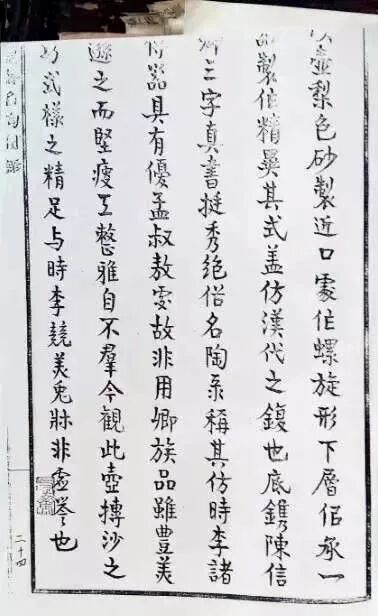 壺梨色砂製近口處作螺旋形下層侣承一
製作精異其式盖仿漢代之鍑也底鐫陳信
卿三字真書挺秀絕俗名陶系稱其仿時李諸
傳器具有優孟叔敖處故非用卿族品雖豊美
遜之而堅瘦工整雅自不羣今觀此壺摶沙之
巧式樣之精足与時李競美兎牀非虛譽也
名陶圖錄
二十四